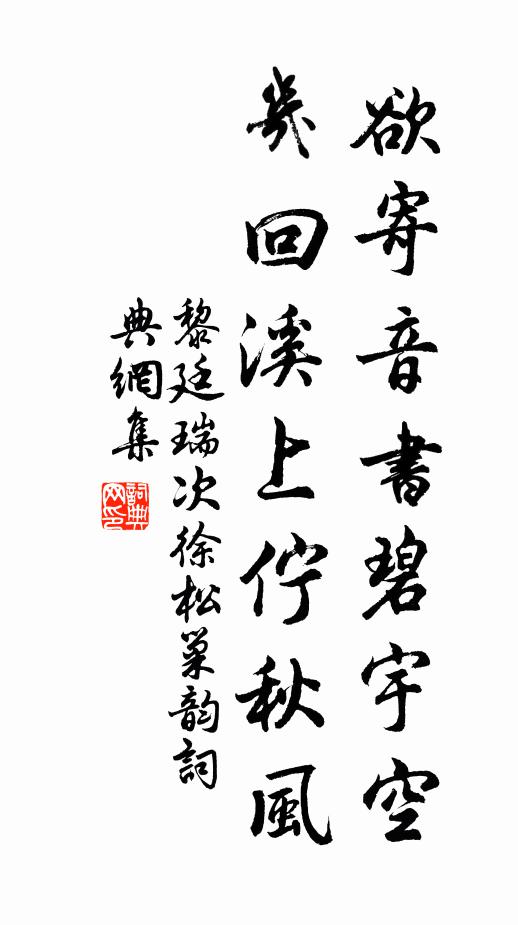 欲寄音書碧宇空
幾回溪上佇秋風
黎廷瑞次徐松巢韵詞
典網集
詞典
网印